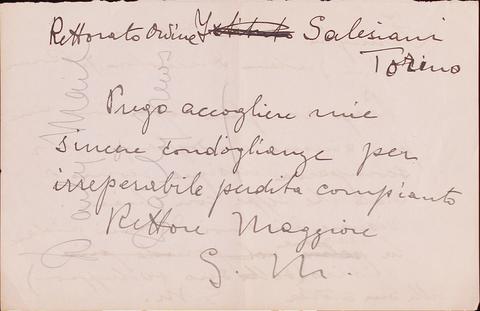 Rettorato Ordine Istituto Salesiani
Torino
Prego accogliere mie
sincere condoglianze per
irreperabile perdita compianto
Rettore Maggiore
G. M.
Daily Mail
Daily News